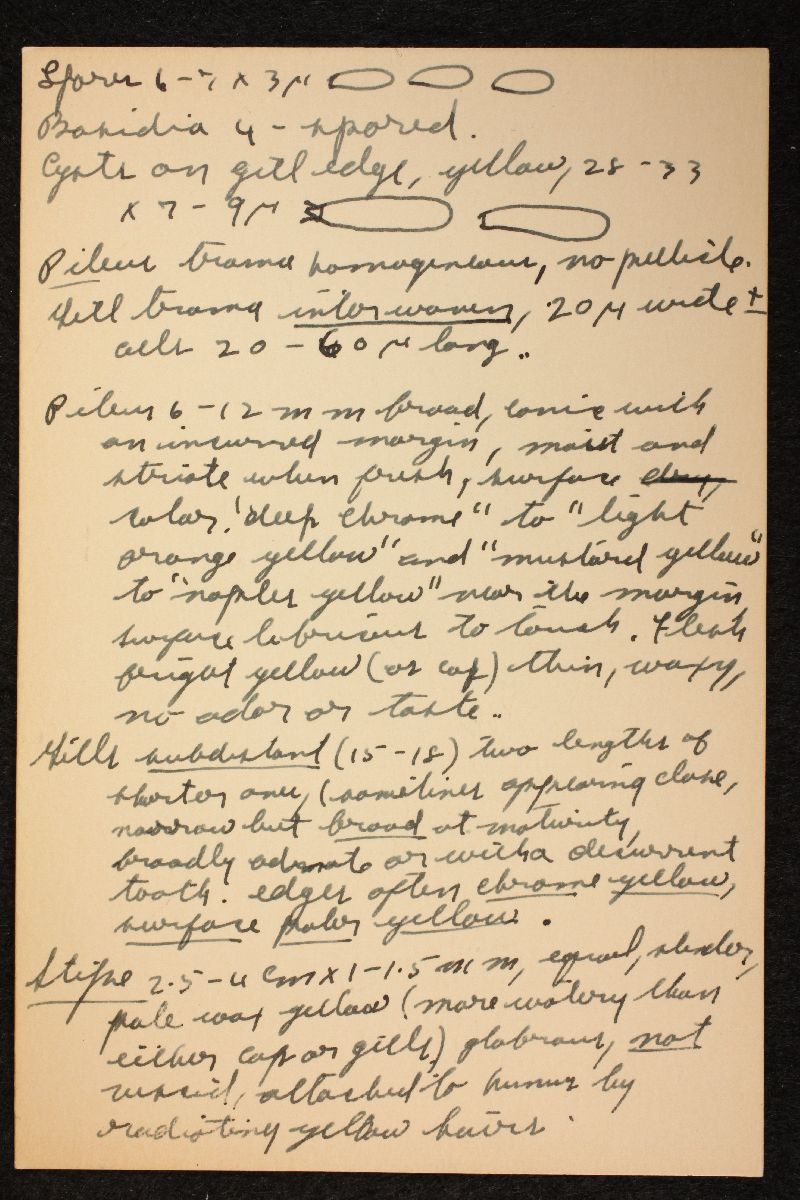 Spores 6-7 x 3μ
Basidia 4-spored.
Cysts on gill edge, yellow, 28-33
x 7-9μ
Pileus trama homogeneous, no pellicle.
Gill trama interwoven, 20μ wide ±
cells 20-60μ long..
Pileus 6-12 mm broad, conic with
an incurved margin, moist and
striate when fresh, surface dry,
color: "deep chrome" to "light
orange yellow" and "mustard yellow"
to "naples yellow" near the margin
surface lubricous to touch. Flesh
bright yellow (as cap) thin, waxy,
no odor or taste..
Gills subdistant (15-18) two lengths of
shorter ones, (sometimes appearing close,
narrow but broad at maturity,
broadly adnate or with a decurrent
tooth. edges often chrome yellow,
surface paler yellow.
Stipe 2.5-4 cm x 1-1.5 mm, equal, slender,
pale wax yellow (more watery than
either cap or gills) glabrous, not
viscid, attached to humus by
radiating yellow hairs.